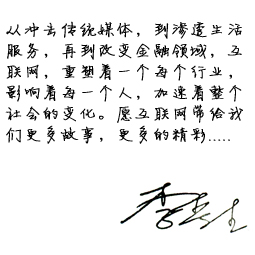 从冲击传统媒体，到渗透生活
服务，再到改变金融领域，互
联网，重塑着一个每个行业，
影响着每一个人，加速着整个
社会的变化。愿互联网带给我
们更多故事，更多的精彩.....